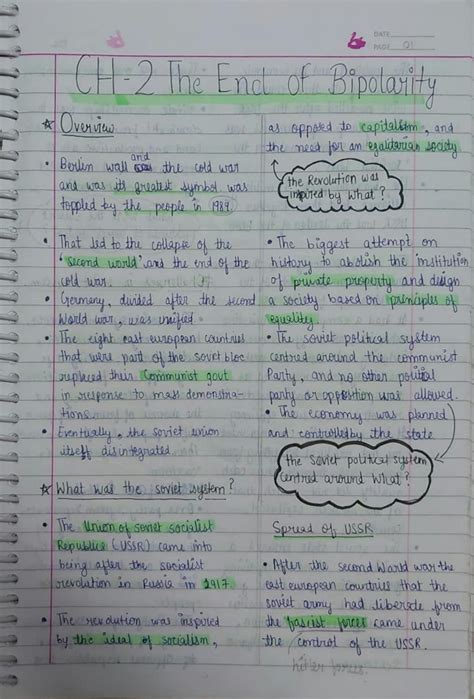 DATE
PAGE 01
CH-2 The End of Bipolarity
Overview
Berlin wall and the cold war
and was its greatest symbol was
toppled by the people in 1989
That led to the collapse of the
'second world' and the end of the
cold war.
Germany, divided after the second
World war, was unified.
The eight east european countries
that were part of the soviet bloc
replaced their Communist govt
in response to mass demonstra-
tions.
Eventually, the soviet union
itself disintegrated.
What was the soviet system?
The Union of soviet socialist
Republics (USSR) came into
being after the socialist
revolution in Russia in 1917.
The revolution was inspired
by the ideal of socialism,
as opposed to capitalism, and
the need for an egalitarian society
the Revolution was
inspired by what?
The biggest attempt on
history to abolish the institution
of private property and design
a society based on principles of
equality.
The soviet political system
centred around the communist
Party, and no other political
party or opposition was allowed.
The economy was planned
and controlled by the state
the Soviet political system
centred around What?
Spread of USSR
After the second World war the
east european countries that the
soviet army had liberate from
the fascist forces came under
the control of the USSR.